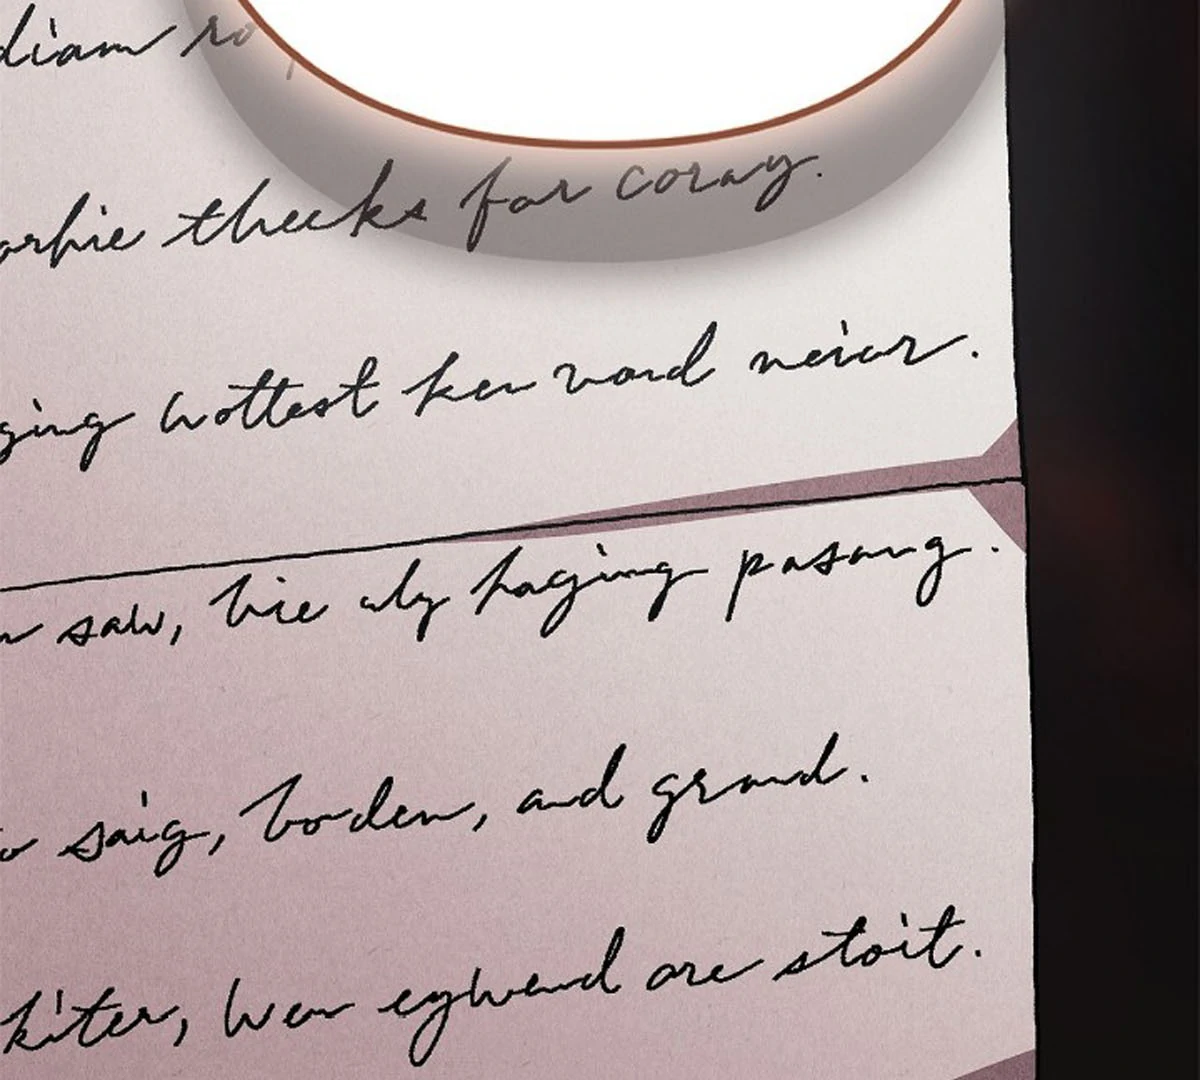 diam
thecks for coray.
ging wottest ken vond neiar.
saw, bie aly haging pasang.
saig, boden, and grand.
kiter, wen eywend are stoit.